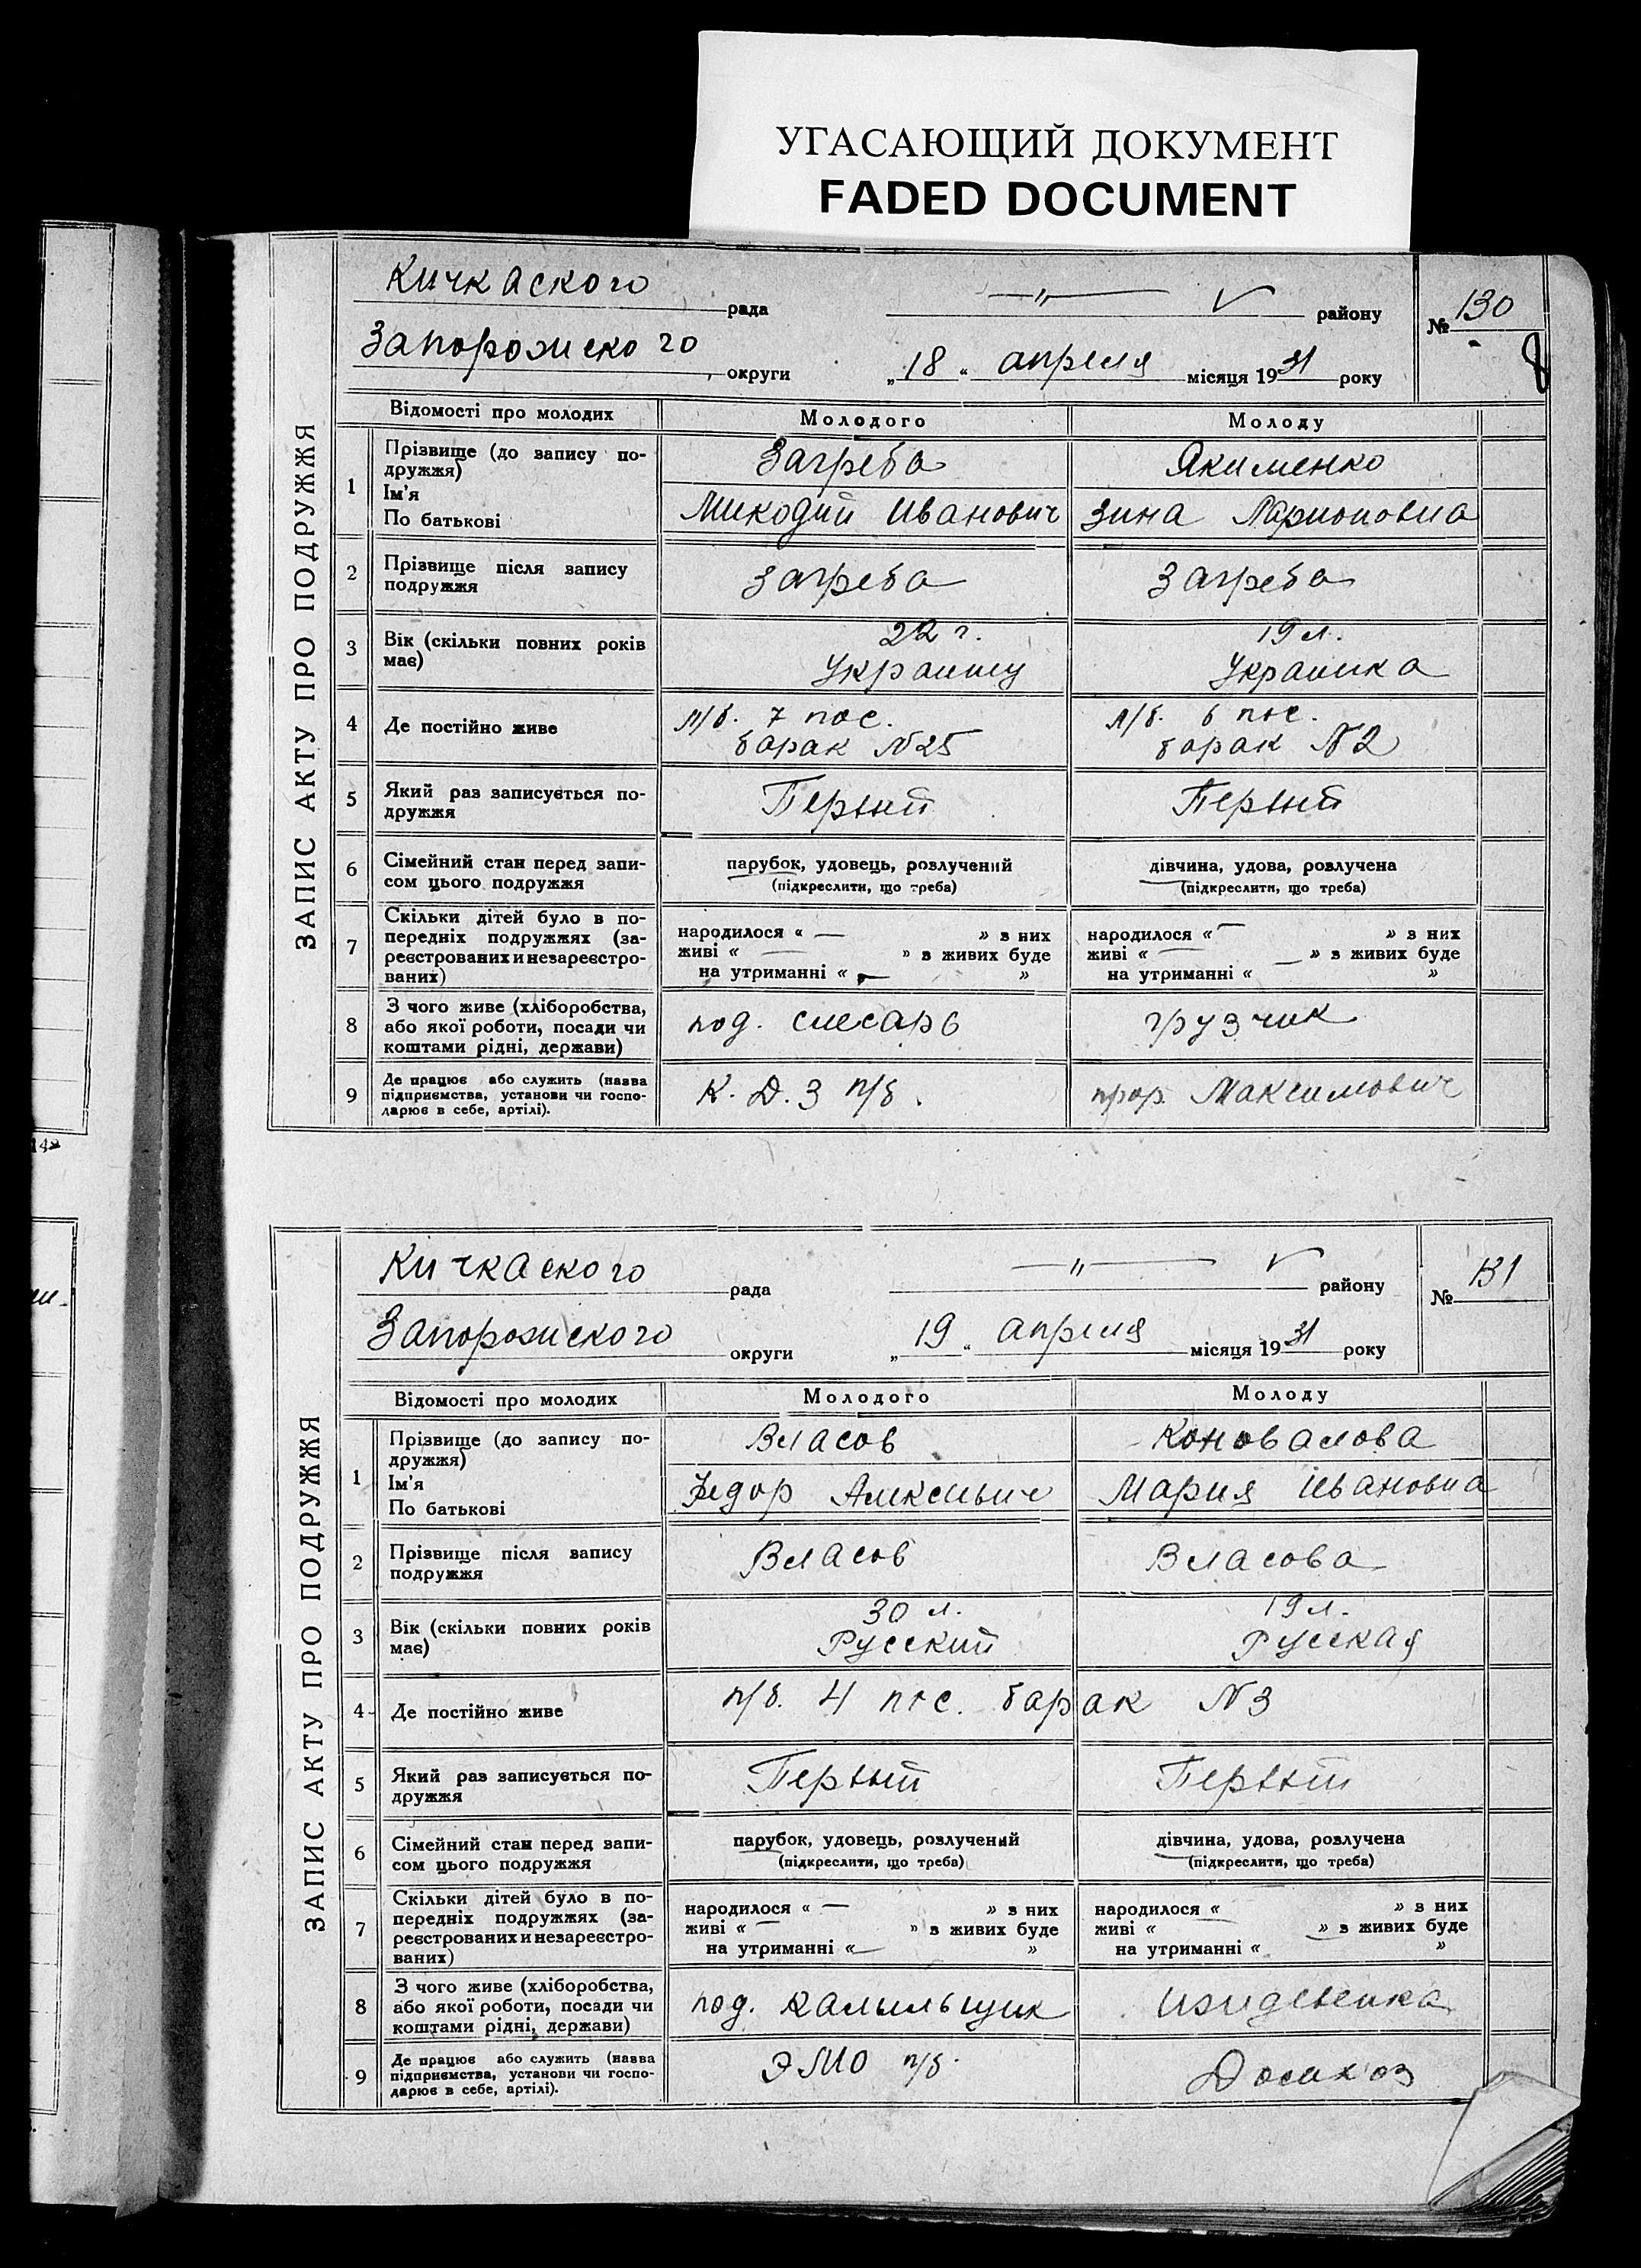 УГАСАЮЩИЙ ДОКУМЕНТ
FADED DOCUMENT
ЗАПИС АКТУ ПРО ПОДРУЖЖЯ
Кичкаского рада —„— V району
№ 130
Запорожского округи „18“ апреля місяця 1931 року
8
Відомості про молодих Молодого Молоду
1 Прізвище (до запису по-
дружжя)
Загреба Якименко
Ім'я
По батькові
Микодий Иванович Зина Ларионовна
2 Прізвище після запису
подружжя
Загреба Загреба
3 Вік (скільки повних років
має)
22 г. 19 л.
Украинц Украинка
4 Де постійно живе
п/б. 7 пос. л/б. 6 пос.
барак N25 барак N2
5 Який раз записується по-
дружжя
Первый Первый
6 Сімейний стан перед запи-
сом цього подружжя
парубок, удовець, розлучений дівчина, удова, розлучена
(підкреслити, що треба) (підкреслити, що треба)
7 Скільки дітей було в по-
передніх подружжях (за-
реєстрованих и незареєстро-
ваних)
народилося « — » з них народилося « — » з них
живі « — » з живих буде живі « — » з живих буде
на утриманні « — » на утриманні « — »
8 З чого живе (хліборобства,
або якої роботи, посади чи
коштами рідні, держави)
под. слесарь грузчик
9 Де працює або служить (назва
підприємства, установи чи госпо-
дарює в себе, артілі).
К. Д. З п/б. прор. Максимович
14
ЗАПИС АКТУ ПРО ПОДРУЖЖЯ
Кичкаского рада —„— V району
№ 131
Запорожского округи „19“ апреля місяця 1931 року
Відомості про молодих Молодого Молоду
1 Прізвище (до запису по-
дружжя)
Власов Коновалова
Ім'я
По батькові
Федор Алексеевич Мария Ивановна
2 Прізвище після запису
подружжя
Власов Власова
3 Вік (скільки повних років
має)
30 л. 19 л.
Русский Русская
4 Де постійно живе
п/б. 4 пос. барак N3
5 Який раз записується по-
дружжя
Первый Первый
6 Сімейний стан перед запи-
сом цього подружжя
парубок, удовець, розлучений дівчина, удова, розлучена
(підкреслити, що треба) (підкреслити, що треба)
7 Скільки дітей було в по-
передніх подружжях (за-
реєстрованих и незареєстро-
ваних)
народилося « — » з них народилося « — » з них
живі « — » з живих буде живі « — » з живих буде
на утриманні « — » на утриманні « »
8 З чого живе (хліборобства,
або якої роботи, посади чи
коштами рідні, держави)
под. калыльщик иждевенка
9 Де працює або служить (назва
підприємства, установи чи госпо-
дарює в себе, артілі).
ЭМО п/б.